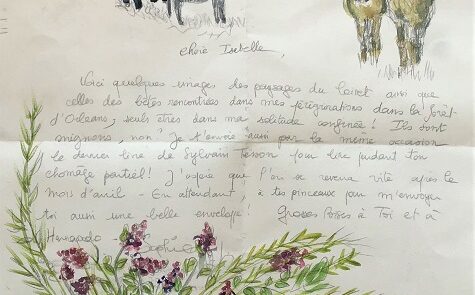 Chère Isabelle,
Voici quelques images des paysages du Loiret ainsi que
celles des bêtes rencontrées dans mes pérégrinations dans la forêt
d'Orléans, seuls êtres dans ma solitude confinée ! Ils sont
mignons, non ? Je t'envoie aussi par la même occasion
le dernier livre de Sylvain Tesson pour lire pendant ton
chômage partiel ! J'espère que l'on se reverra vite après le
mois d'avril - En attendant, à tes pinceaux pour m'envoyer
toi aussi une belle enveloppe ! Grosses bises à Toi et à
Sophie